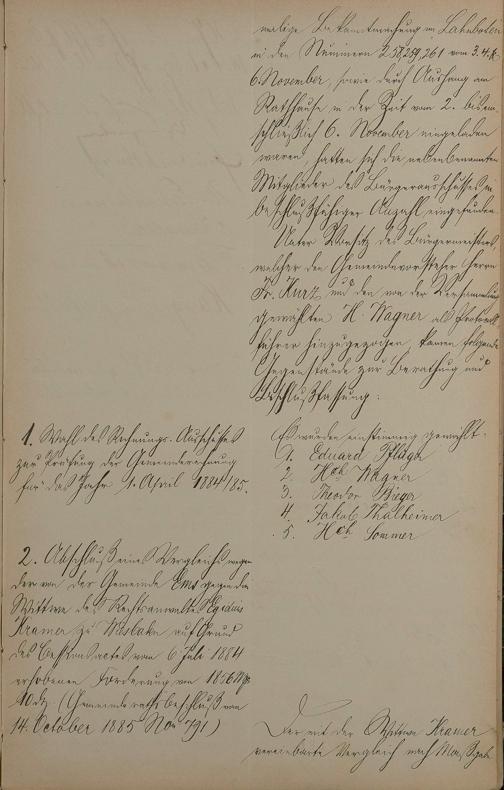 malige Bekanntmachung im Lahnboten
in den Nummern 258, 259, 261 vom 3. 4. &
6. November, sowie durch Aushang am
Rathhause in der Zeit vom 2. bis ein-
schließlich 6. November eingeladen
waren, hatten sich die nebenbenannten
Mitglieder des Bürgerausschusses in
beschlußfähiger Anzahl eingefunden.
Unter Vorsitz des Bürgermeisters,
welcher den Gemeindevorsteher Herrn
Fr. Kurz und den von der Versammlung
gewählten H. Wagner als Protokoll
führer hinzugezogen, kamen folgende
Gegenstände zur Berathung und
Beschlußfassung:
1. Wahl des Rechnungs-Ausschusses
zur Prüfung der Gemeinderechnung
für das Jahr 1. April 1884/85.
Es wurden einstimmig gewählt:
1. Eduard Pflüger
2. Hch Wagner
3. Theodor Bieger
4. Jakob Thalheimer
5. Hch Sommer
2. Abschluß eines Vergleichs wegen
der von der Gemeinde Ems gegen die
Wittwe des Rechtsanwalts Egidius
Kramer zu Wiesbaden auf Grund
des Cessionsactes vom 6 Juli 1884
erhobenen Forderung von 1856 M
40 d. (Gemeinderathsbeschluß vom
14. October 1885 Nr 791)
Der mit der Wittwe Kramer
vereinbarte Vergleich nach Maßgabe